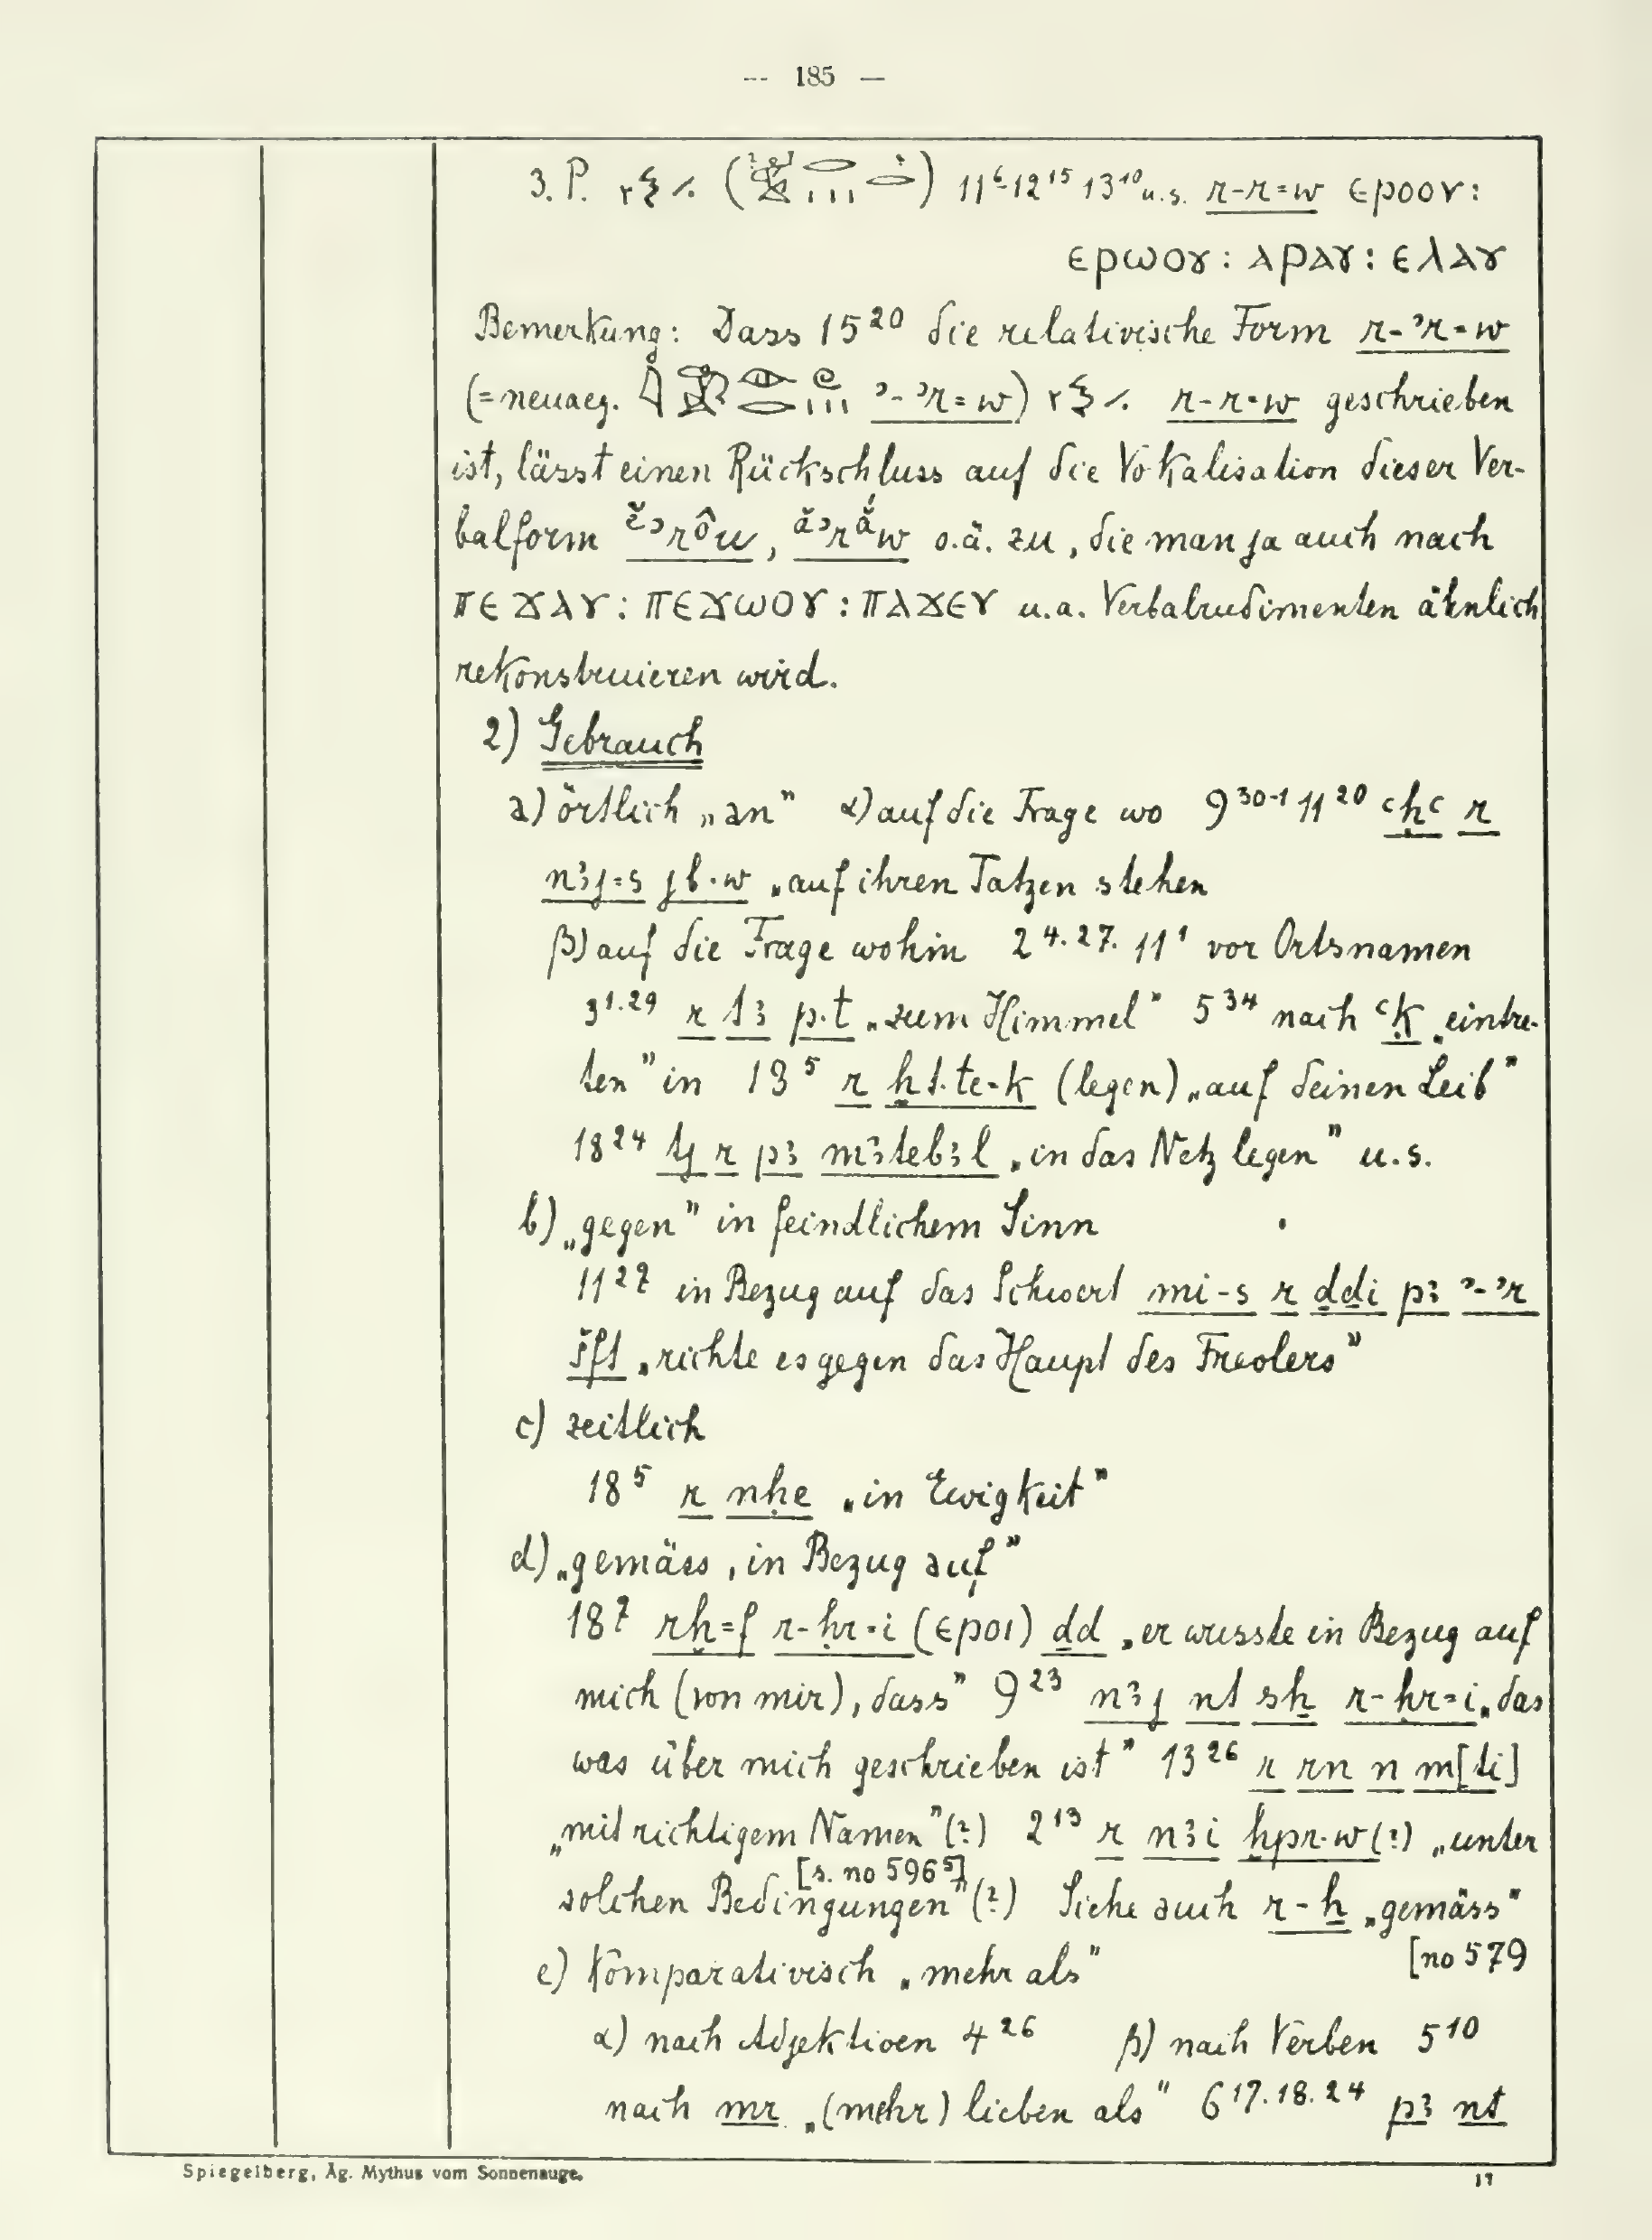 — 185 —
3. P. ( ) 11⁶ 12¹⁵ 13¹⁰ u. s. r-r=w ⲉⲣⲟⲟⲩ:
ⲉⲣⲱⲟⲩ: ⲁⲣⲁⲩ: ⲉⲗⲁⲩ
Bemerkung: Dass 15²⁰ die relativische Form r-ʾr=w
(= neuaeg. ʾ-ʾr=w) r-r=w geschrieben
ist, lässt einen Rückschluss auf die Vokalisation dieser Ver-
balform ĕʾrôu, ăʾrắw o.ä. zu, die man ja auch nach
ⲡⲉϫⲁⲩ: ⲡⲉϫⲱⲟⲩ: ⲡⲁϫⲉⲩ u.a. Verbalrudimenten ähnlich
rekonstruieren wird.
2) Gebrauch
a) örtlich „an" α) auf die Frage wo 9³⁰⁻¹ 11²⁰ ꜥḥꜥ r
nꜣj=s jb·w „auf ihren Tatzen stehen
β) auf die Frage wohin 2⁴·²⁷· 11¹ vor Ortsnamen
3¹·²⁹ r tꜣ p·t „zum Himmel" 5³⁴ nach ꜥḳ „eintre-
ten" in 13⁵ r ẖt·te-k (legen) „auf deinen Leib"
18²⁴ tj r pꜣ mꜣtebꜣl „in das Netz legen" u.s.
b) „gegen" in feindlichem Sinn
11²⁷ in Bezug auf das Schwert mi-s r ḏḏi pꜣ ʾ-ʾr
šft „richte es gegen das Haupt des Frevlers"
c) zeitlich
18⁵ r nḥe „in Ewigkeit"
d) „gemäss, in Bezug auf"
18⁷ rḫ=f r-ḥr=i (ⲉⲣⲟⲓ) ḏd „er wusste in Bezug auf
mich (von mir), dass" 9²³ nꜣj nt sẖ r-ḥr=i „das
was über mich geschrieben ist" 13²⁶ r rn n m[ti]
„mit richtigem Namen"(?) 2¹³ r nꜣi ḫpr·w(?) „unter
[s. no 596⁵]
solchen Bedingungen"(?) Siehe auch r-ẖ „gemäss"
[no 579
e) Komparativisch „mehr als"
α) nach Adjektiven 4²⁶ β) nach Verben 5¹⁰
nach mr „(mehr) lieben als" 6¹⁷·¹⁸·²⁴ pꜣ nt
Spiegelberg, Äg. Mythus vom Sonnenauge.
17